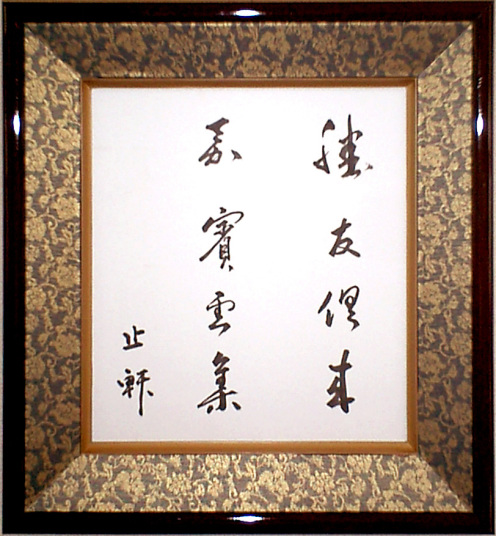 勝友倶来
嘉賓雲集
止軒